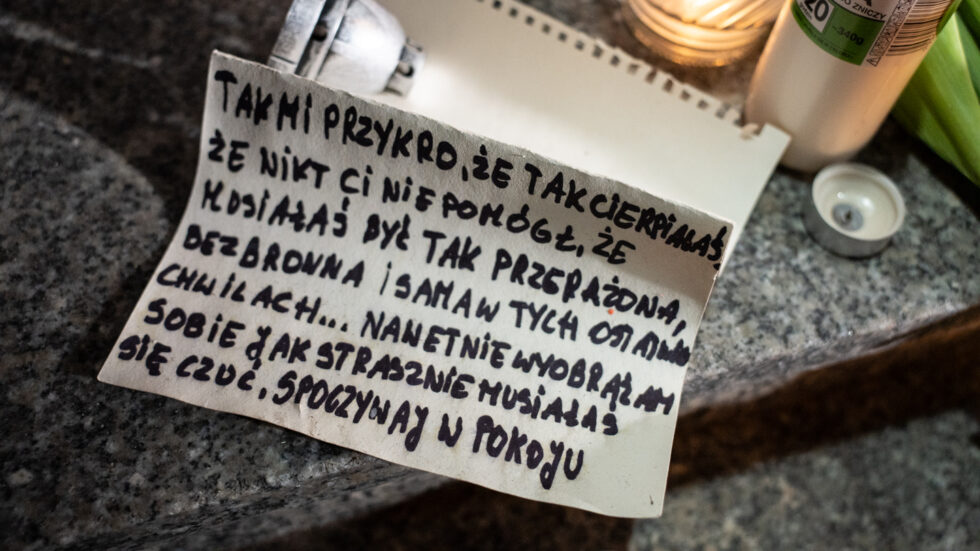 ZNICZY
20 ~340g
TAK MI PRZYKRO, ŻE TAK CIERPIAŁAŚ,
ŻE NIKT CI NIE POMÓGŁ, ŻE
MUSIAŁAŚ BYĆ TAK PRZERAŻONA,
BEZBRONNA I SAMA W TYCH OSTATNICH
CHWILACH... NAWET NIE WYOBRAŻAM
SOBIE JAK STRASZNIE MUSIAŁAŚ
SIĘ CZUĆ. SPOCZYWAJ W POKOJU